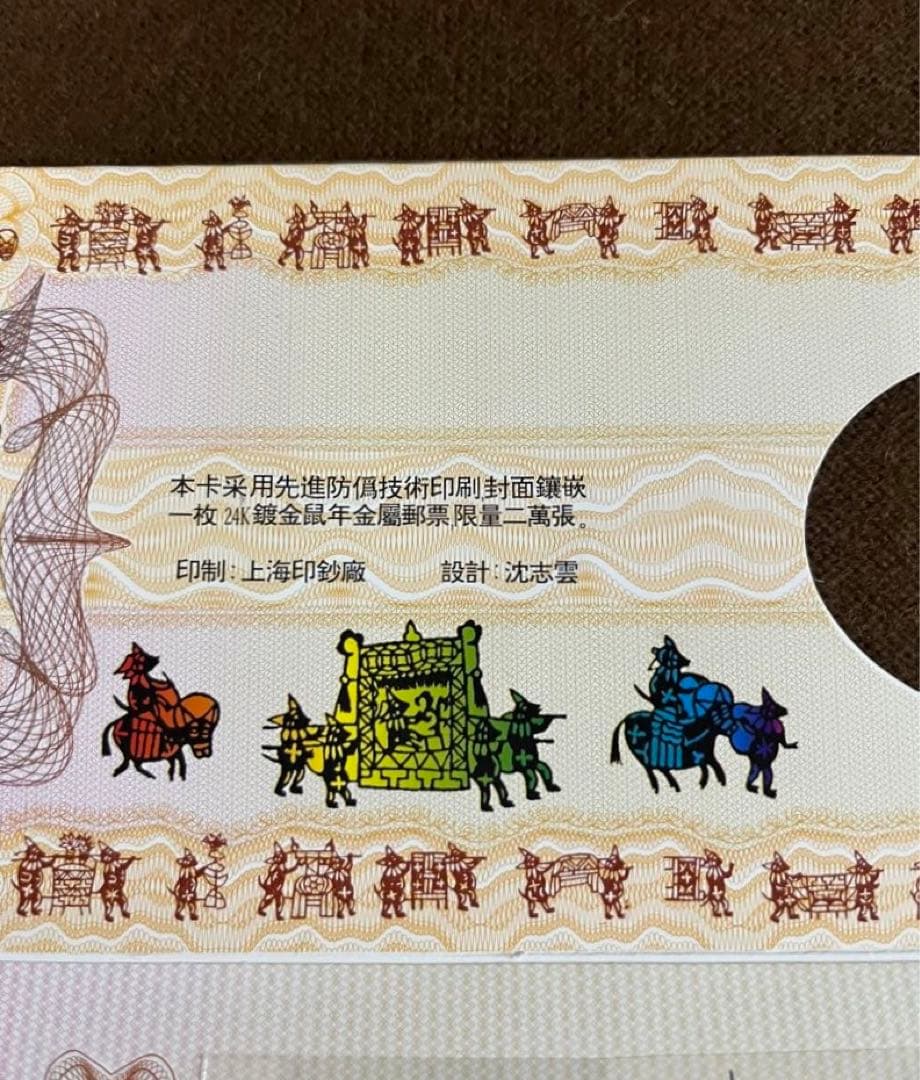 本卡采用先進防僞技術印刷封面鑲嵌
一枚24K鍍金鼠年金屬郵票,限量二萬張。
印制:上海印鈔廠 設計:沈志雲